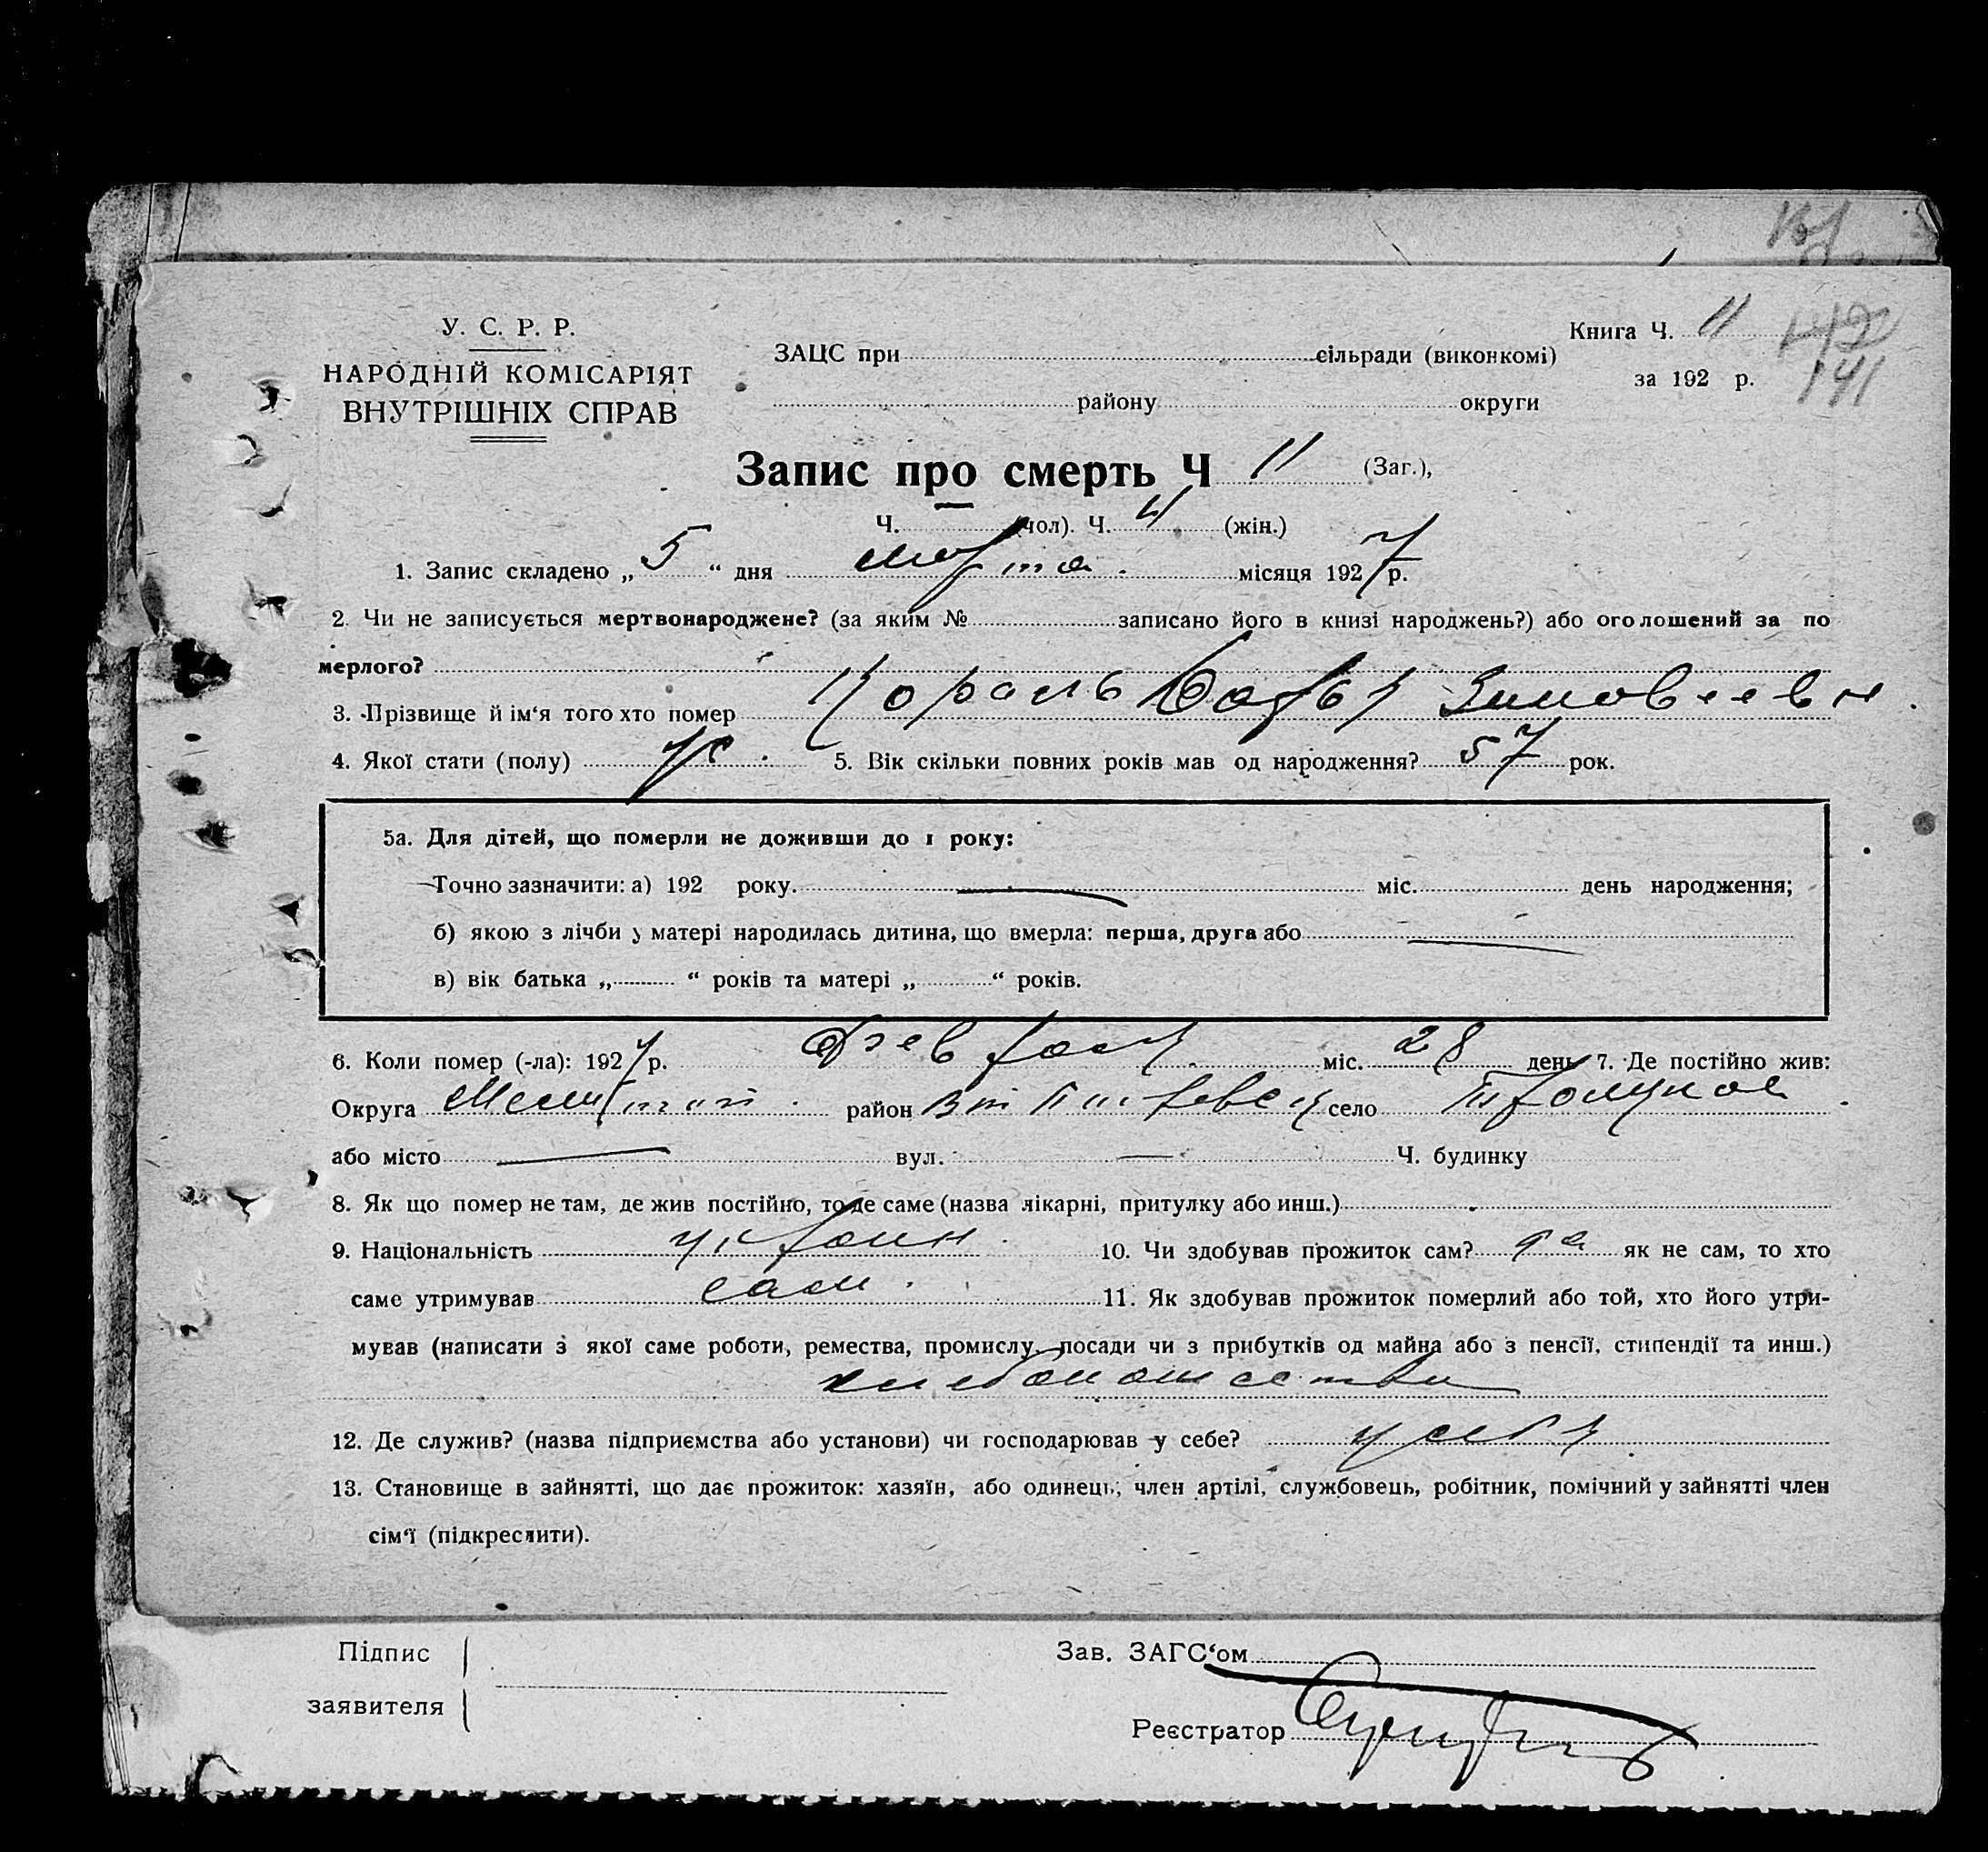 У. С. Р. Р.
НАРОДНІЙ КОМІСАРІЯТ
ВНУТРІШНІХ СПРАВ
ЗАЦС при сільради (виконкомі)
району округи
Книга Ч. 11
за 192 р.
142
141
Запис про смерть Ч 11 (Заг.),
Ч. (чол). Ч. 4 (жін.)
1. Запис складено „ 5 “ дня марта місяця 1927 р.
2. Чи не записується мертвонароджене? (за яким № записано його в книзі народжень?) або оголошений за по
мерлого?
3. Прізвище й ім‘я того хто помер Король Зиновеевн
4. Якої стати (полу) ж. 5. Вік скільки повних років мав од народження? 57 рок.
5а. Для дітей, що померли не доживши до 1 року:
Точно зазначити: а) 192 року. міс. день народження;
б) якою з лічби у матері народилась дитина, що вмерла: перша, друга або
в) вік батька „ “ років та матері „ “ років.
6. Коли помер (-ла): 1927 р. Февраля міс. 28 день 7. Де постійно жив:
Округа Мелит район село
або місто вул. Ч. будинку
8. Як що помер не там, де жив постійно, то де саме (назва лікарні, притулку або инш.)
9. Національність украин 10. Чи здобував прожиток сам? да як не сам, то хто
саме утримував сам. 11. Як здобував прожиток померлий або той, хто його утри-
мував (написати з якої саме роботи, ремества, промислу, посади чи з прибутків од майна або з пенсії, стипендії та инш.)
12. Де служив? (назва підприємства або установи) чи господарював у себе? у себя
13. Становище в зайнятті, що дає прожиток: хазяїн, або одинець; член артілі, службовець, робітник, помічний у зайнятті член
сім‘ї (підкреслити).
Підпис
заявителя
Зав. ЗАГС‘ом
Реєстратор